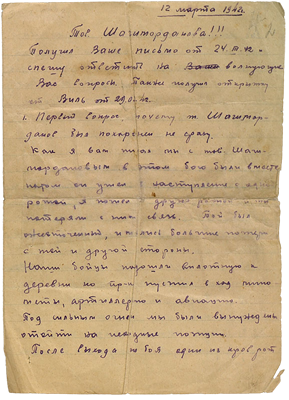 12 марта 1942.
Тов. Шаймарданова!!!
Получил Ваше письмо от 24.III.42.
спешу ответить на волнующие
Вас вопросы. Также получил открытку
от 29.02.42.
1. Первый вопрос, почему т. Шаймар-
данов был похоронен не сразу.
Как я вам писал мы с тов. Шай-
мардановым в этом бою были вместе
он ушел в наступление с
ротой, я пошел другой и мы
потеряли с ним связь. Бой был
ожесточенный, имелись большие потери
с той и другой стороны.
Наши бойцы подошли вплотную к
деревне но враг пустил в ход мино
меты, артиллерию и авиацию.
Под сильным огнем мы были вынуждены
отойти на исходные позиции.
После выхода из боя один из рот